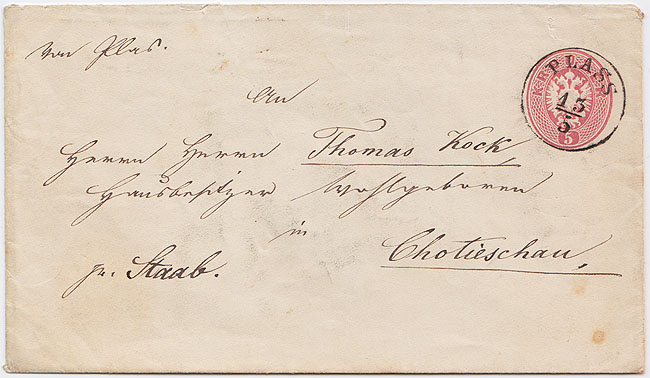 Von Plas.
PLASS
13/5
5
An
Herrn Herrn Thomas Kock,
Hausbesitzer Wohlgeboren
in
pr. Staab.
Chotieschau,